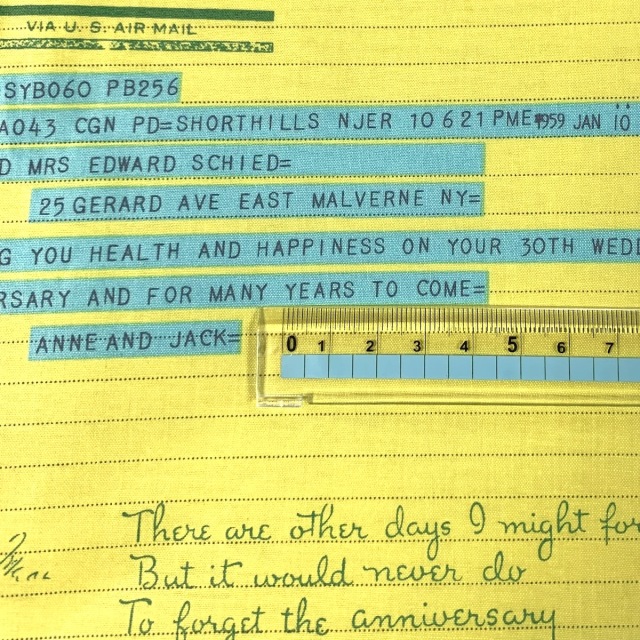 VIA U. S. AIR MAIL
SYB060 PB256
A043 CGN PD=SHORTHILLS NJER 10 621PME 1959 JAN 10
D MRS EDWARD SCHIED=
25 GERARD AVE EAST MALVERNE NY=
G YOU HEALTH AND HAPPINESS ON YOUR 30TH WEDD
RSARY AND FOR MANY YEARS TO COME=
ANNE AND JACK=
0 1 2 3 4 5 6 7
There are other days I might for
But it would never do
To forget the anniversary